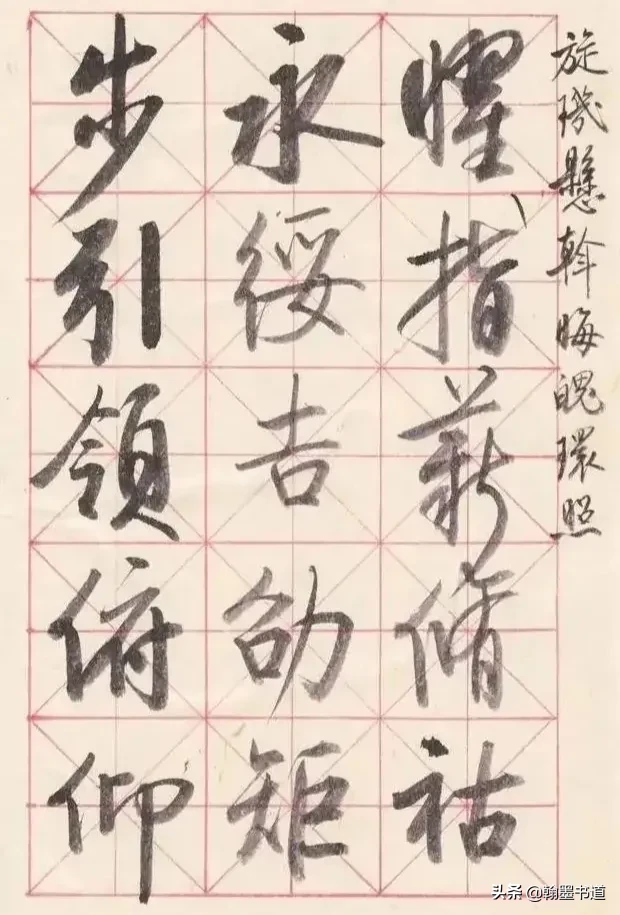 旋璣懸斡晦魄環照
曜指薪脩祜
永綏吉劭矩
步引領俯仰
头条 @翰墨书道